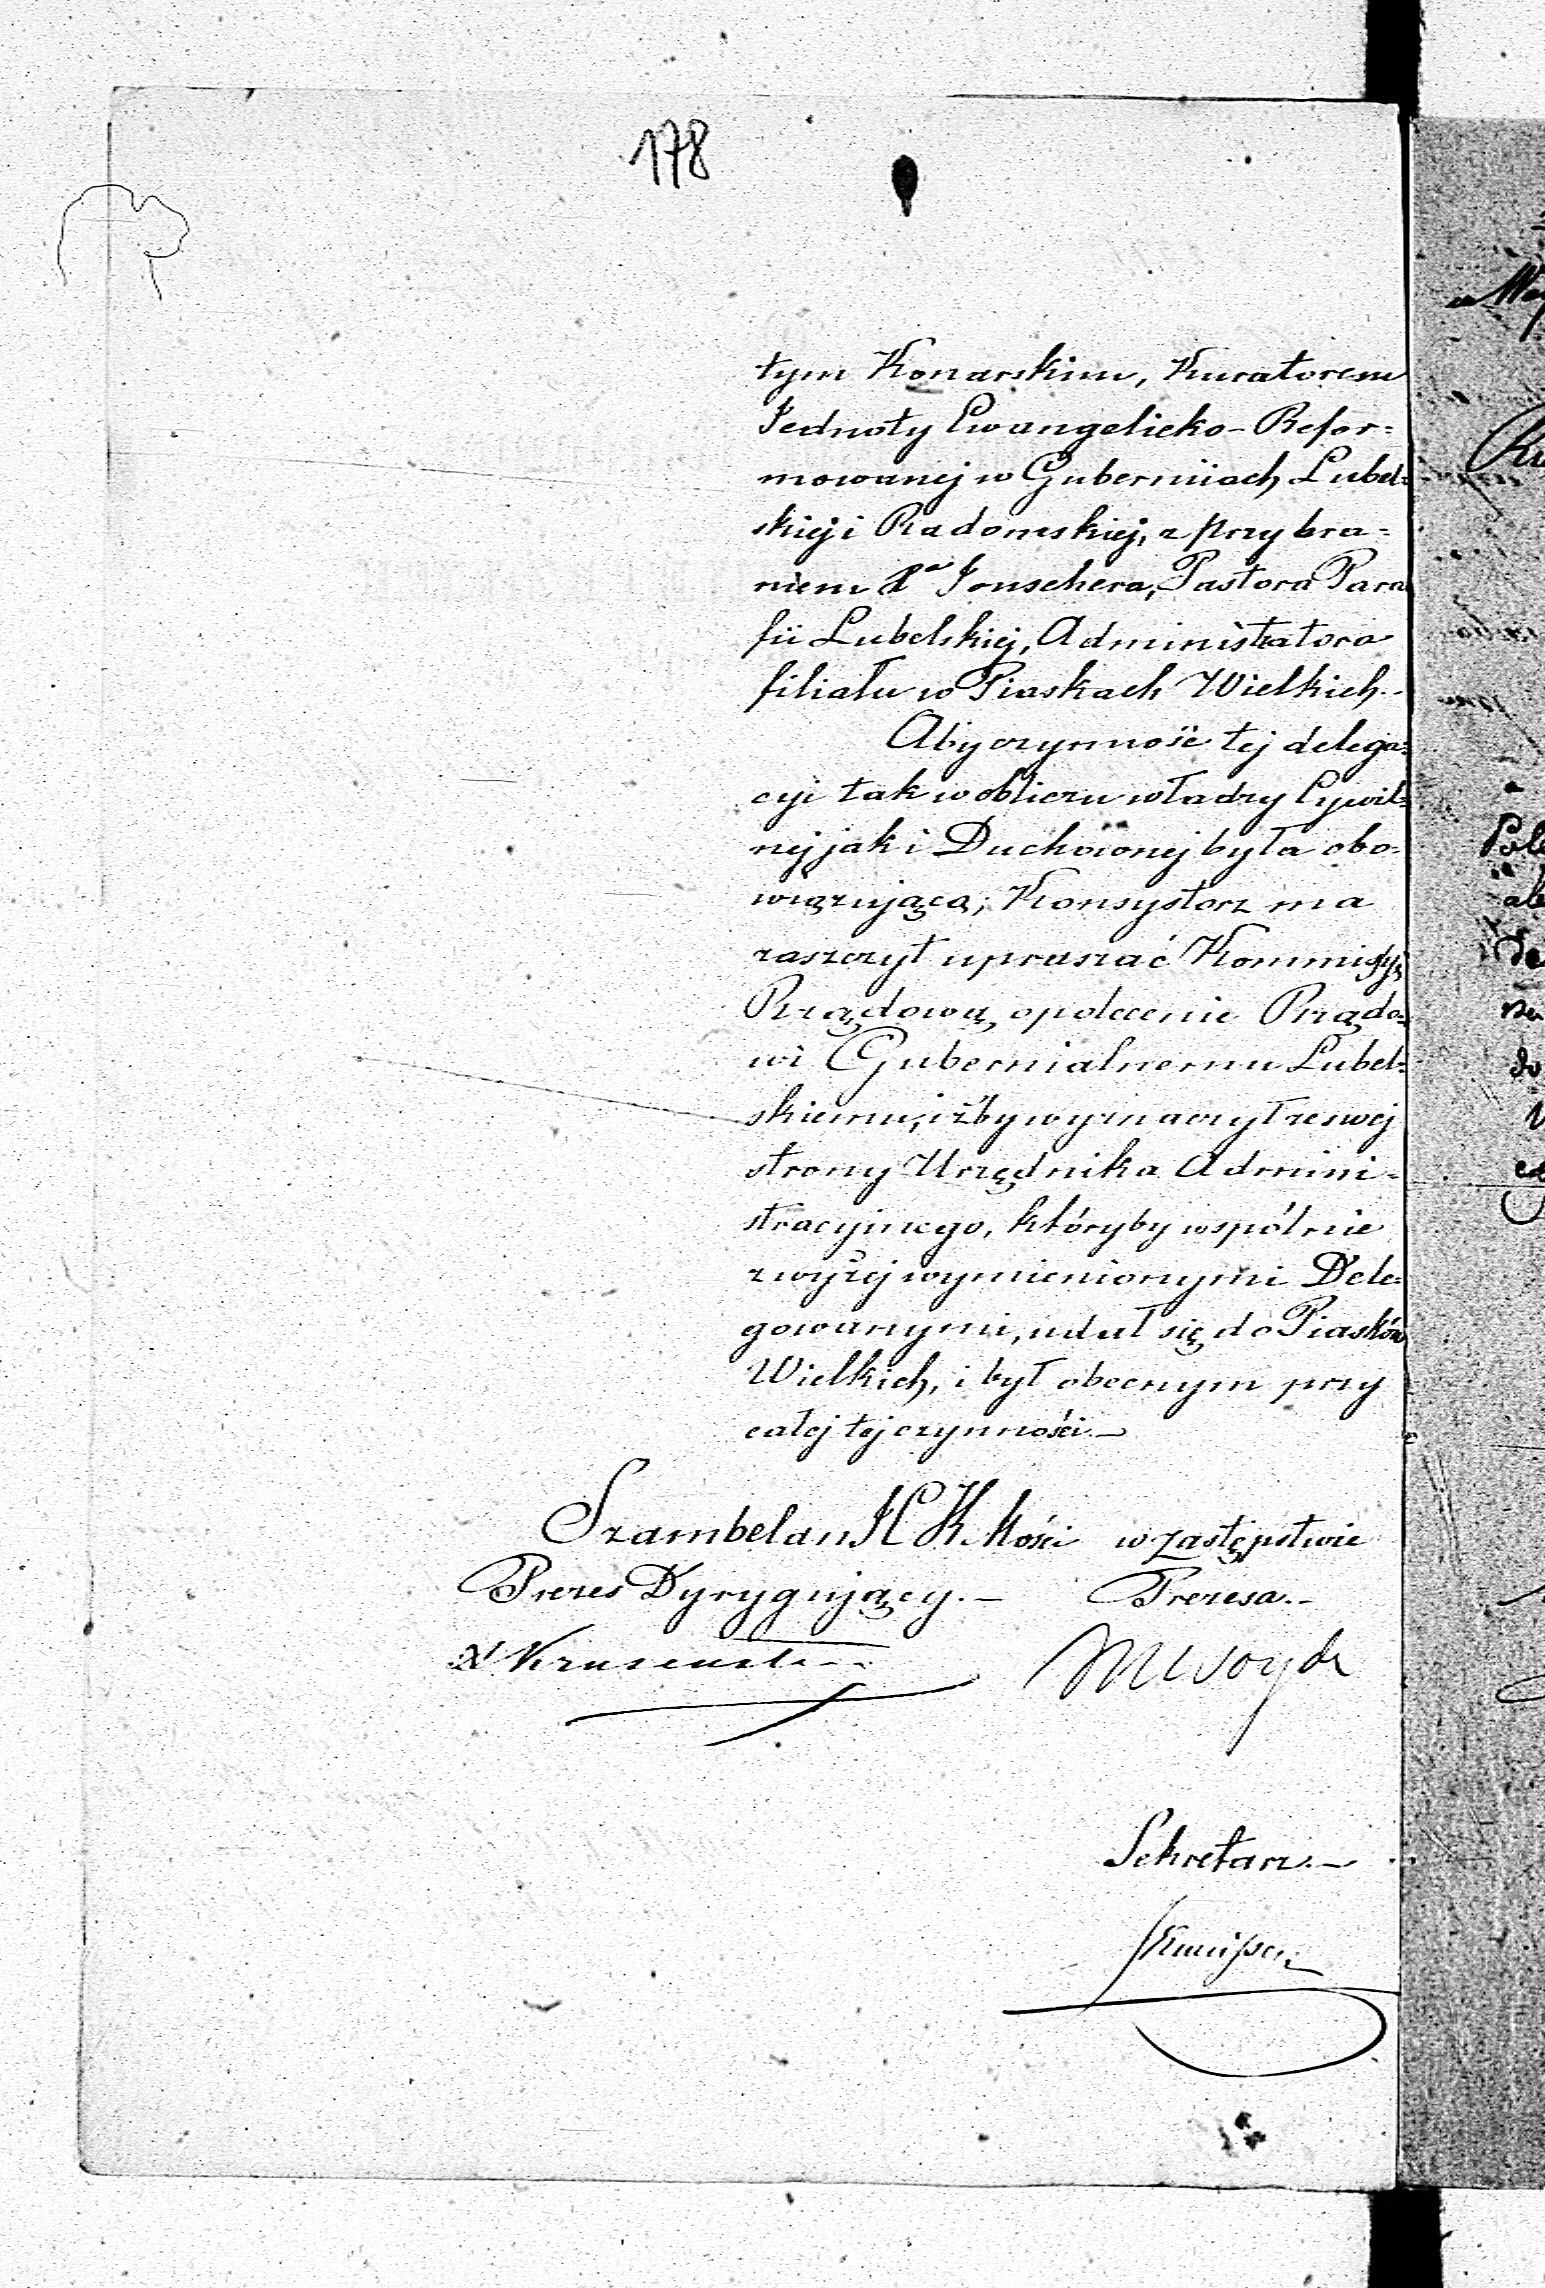 178
tym Konarskim, Kuratorem
Jednoty Ewangelicko-Refor=
mowanej w Guberniiach Lubel=
skiej i Radomskiej, z przybra=
niem Xa Jonschera, Pastora Para
fii Lubelskiej, Administratora
filiału w Piaskach Wielkich.-
Aby czynność tej delega=
cyi tak w obliczu władzy Cywil=
nej jak i Duchownej była obo=
wiązującą; Konsystorz ma
zaszczyt upraszać Kommissyę
Rządową o polecenie Rządo=
wi Gubernialnemu Lubel=
skiemu, iżby wyznaczył ze swej
strony Urzędnika Admini=
stracyjnego, któryby wspólnie
z wyżej wymienionymi Dele=
gowanymi, udał się do Piasków
Wielkich, i był obecnym przy
całej tej czynności.-
Szambelan JC K Mości w zastępstwie
Prezes Dyrygujący.- Prezesa.-
Sekretarz.-